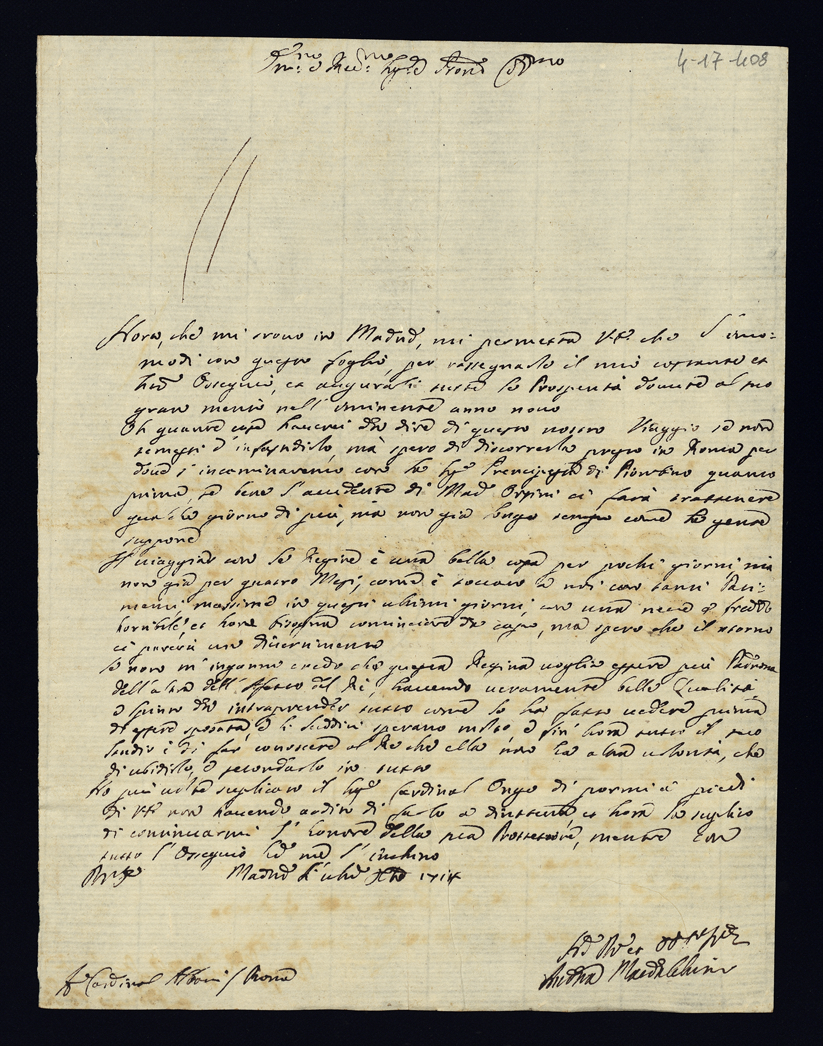 4-17-408
Em.o e Rev.mo Sig.re Prone Col.mo
Hora, che mi trovo in Madrid, mi permetta V.E. che l'inco=
modi con questo foglio, per rassegnarle il mio costante et
hum.e Ossequio, et augurarli tutte le Prosperità dovute al suo
gran merito nell'imminente anno novo
Oh quante cose haverei da dire di questo nostro Viaggio se non
temessi d'infastidirlo, mà spero di discorrerla presto in Roma per
dove s'incaminaremo con la Sig.ra Prencipessa di Piombino quanto
prima, se bene l'accidente di Mad.e Orsini ci farà trattenere
qualche giorno di più, mà non già longo tempo come la gente
suppone
Il viaggiar con le Regine è una bella cosa per pochi giorni, mà
non già per quattro Mesi, come è toccato a noi con tanti Pati=
menti, massime in questi ultimi giorni, con una neve e freddo
horribile, et hora bisogna cominciare da capo, ma spero che il ritorno
ci parerà un divertimento
Se non m'inganno credo che questa Regina voglia essere più Padrona
dell'altra dell'Affetto del Rè, havendo veramente belle Qualità
e spirito da intraprender tutto come lo ha fatto vedere prima
di essere sposata, e li sudditi sperano molto e fin hora tutto il suo
studio è di far conoscere al Rè che ella non ha altra volontà, che
di ubidirlo, e secondarlo in tutto
Ho più volte suplicato il Sig.r Cardinal di pormi a' piedi
di V.E. non havendo ardire di farlo a dirittura, et hora la suplico
di continuarmi l'honore della sua Protettione, mentre con
tutto l'Ossequio me l'inchino
Madrid li ult.o Xbre 1714
S.r Cardinal Albani / Roma
Andrea Maidalchini